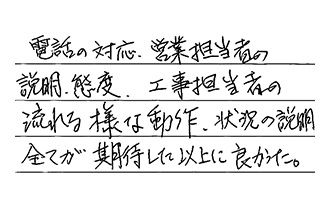 電話の対応、営業担当者の
説明、態度、工事担当者の
流れる様な動作、状況の説明
全てが期待して以上に良かった。